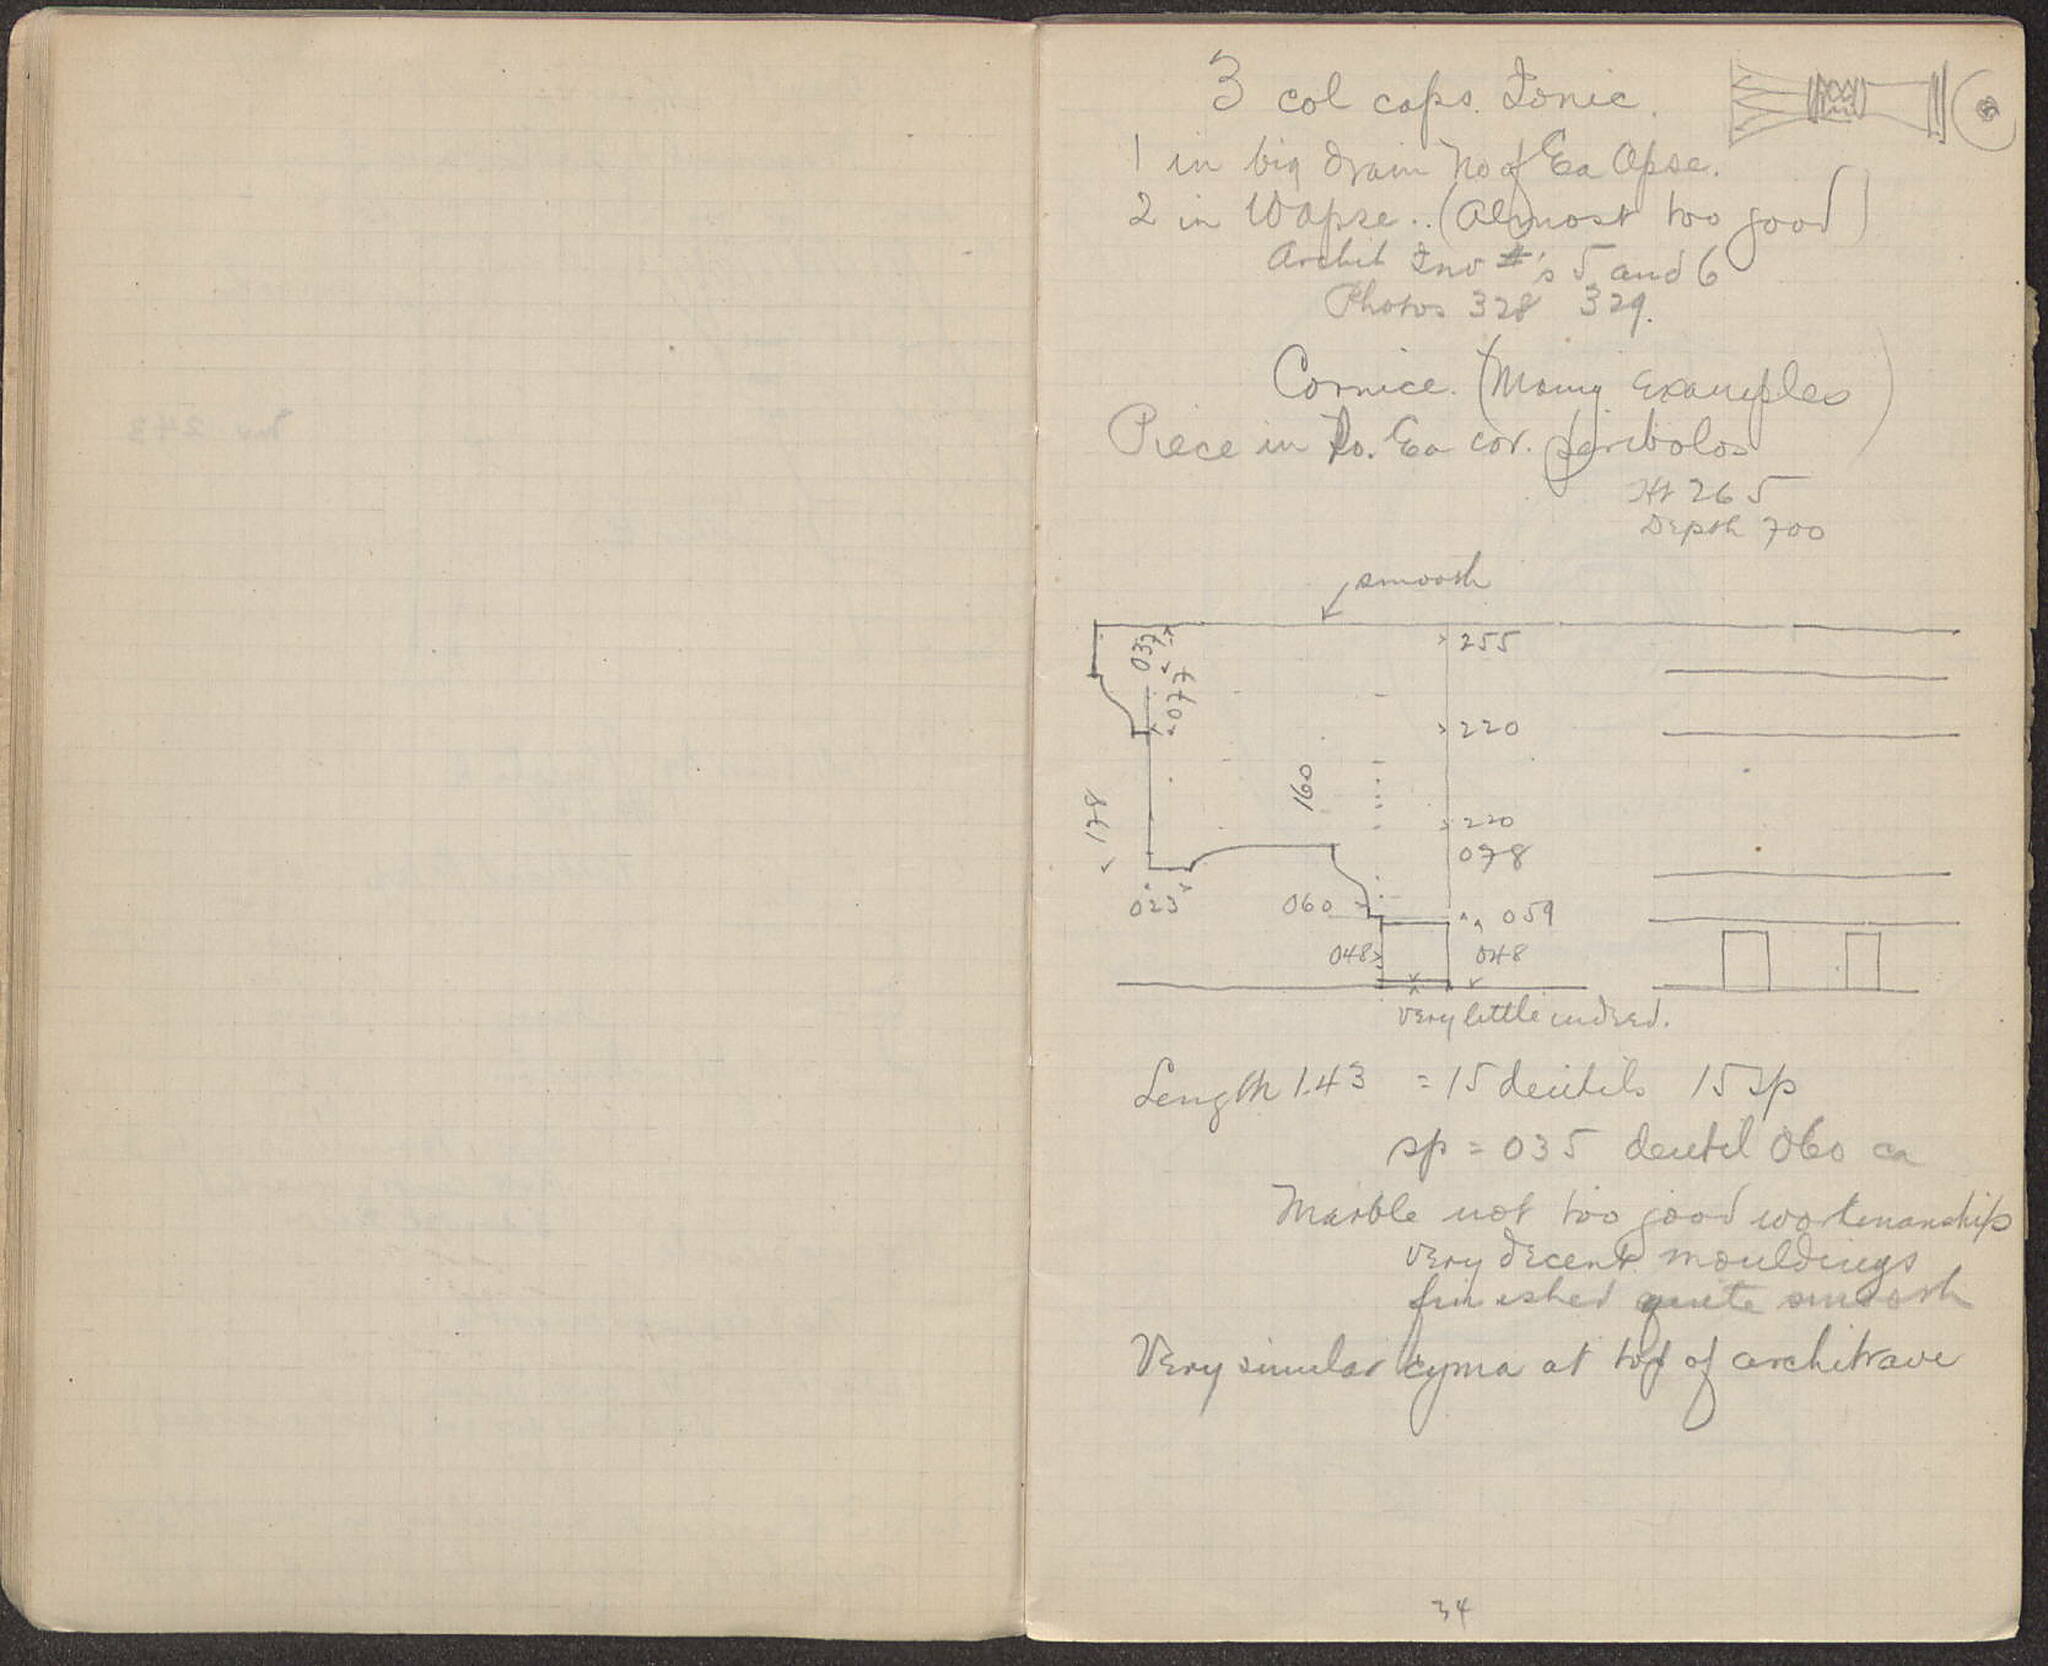 3 col caps. Ionic.
1 in big drain No of Ea Apse.
2 in W Apse.. (Almost too good)
Archit Inv #'s 5 and 6
Photos 328 329.
Cornice. (Many Examples)
Piece in So. Ea cor. peribolos
Ht 265
Depth 700
smooth
037
077
255
220
160
178
220
078
023
060
059
048
048
very little indeed.
Length 1.43 = 15 dentils 15 sp
sp = 035 dentil 060 ca
Marble not too good workmanship
very decent mouldings
finished quite smooth
Very similar cyma at top of architrave
34